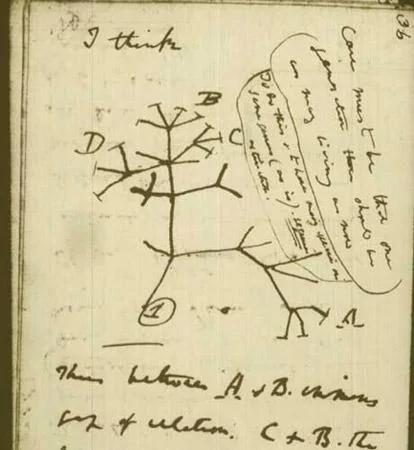 36
I think
Case must be that one
generation then should be
as many living as now
To do this & to have many species in
same genus (as is) requires
extinction
B
D
C
A
1
Thus between A & B. immens
gap of relation. C & B. the